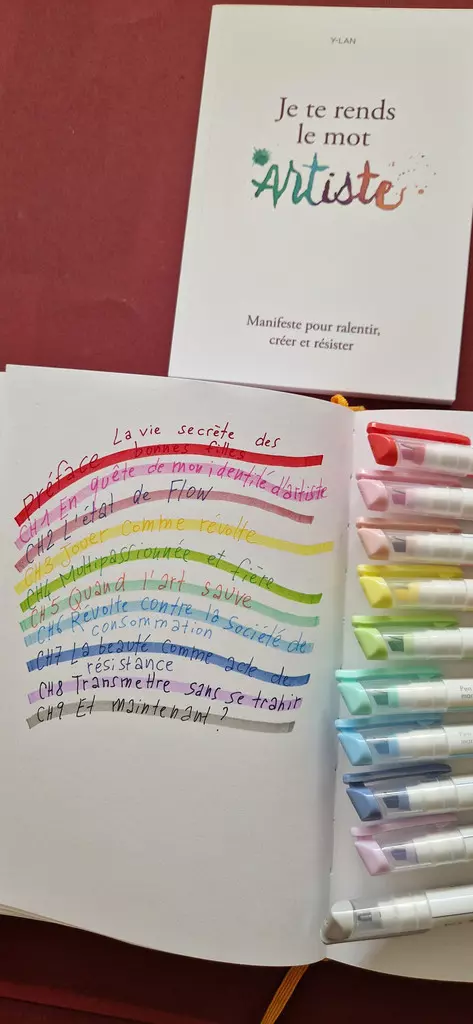 Y-LAN
Je te rends
le mot
Artiste
Manifeste pour ralentir,
créer et résister
Préface La vie secrète des
bonnes filles
CH1 En quête de mon identité d'artiste
CH2 L'état de Flow
CH3 Jouer comme révolte
CH4 Multipassionnée et fière
CH5 Quand l'art sauve
CH6 Révolte contre la Société de
consommation
CH7 La beauté comme acte de
résistance
CH8 Transmettre sans se trahir
CH9 Et maintenant ?